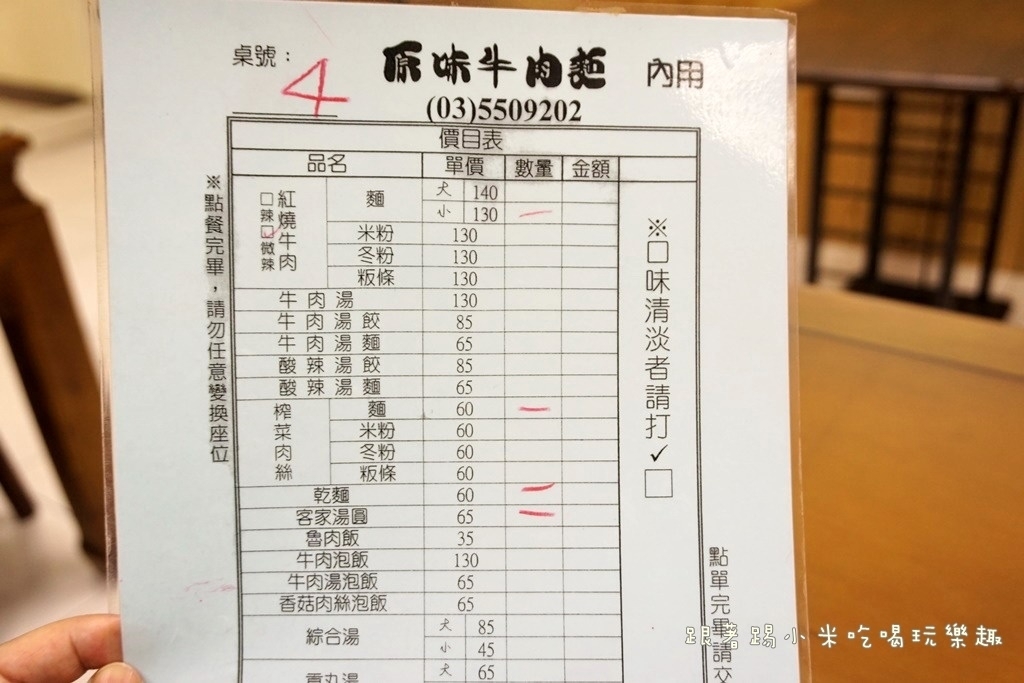 桌號：
4
原味牛肉麵
內用
(03)5509202
價目表
品名 單價 數量 金額
紅燒牛肉
□辣□微辣
麵 大 140
小 130 一
米粉 130
冬粉 130
粄條 130
牛肉湯 130
牛肉湯餃 85
牛肉湯麵 65
酸辣湯餃 85
酸辣湯麵 65
榨菜肉絲
麵 60 一
米粉 60
冬粉 60
粄條 60
乾麵 60 一
客家湯圓 65 一
魯肉飯 35
牛肉泡飯 130
牛肉湯泡飯 65
香菇肉絲泡飯 65
綜合湯 大 85
小 45
貢丸湯 大 65
※點餐完畢，請勿任意變換座位
※口味清淡者請打✓□
點單完畢請交
跟著踢小米吃喝玩樂趣